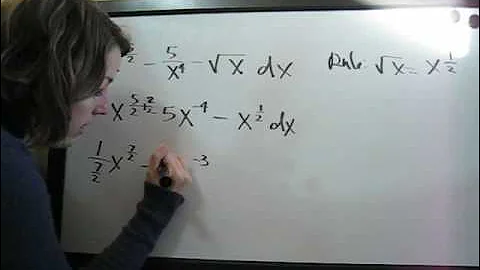 5/2 - 5/x⁴ - √x dx
Rule: √x = x^1/2
x^5/2+2/2 5x^-4 - x^1/2 dx
1/(7/2) x^7/2 - -3